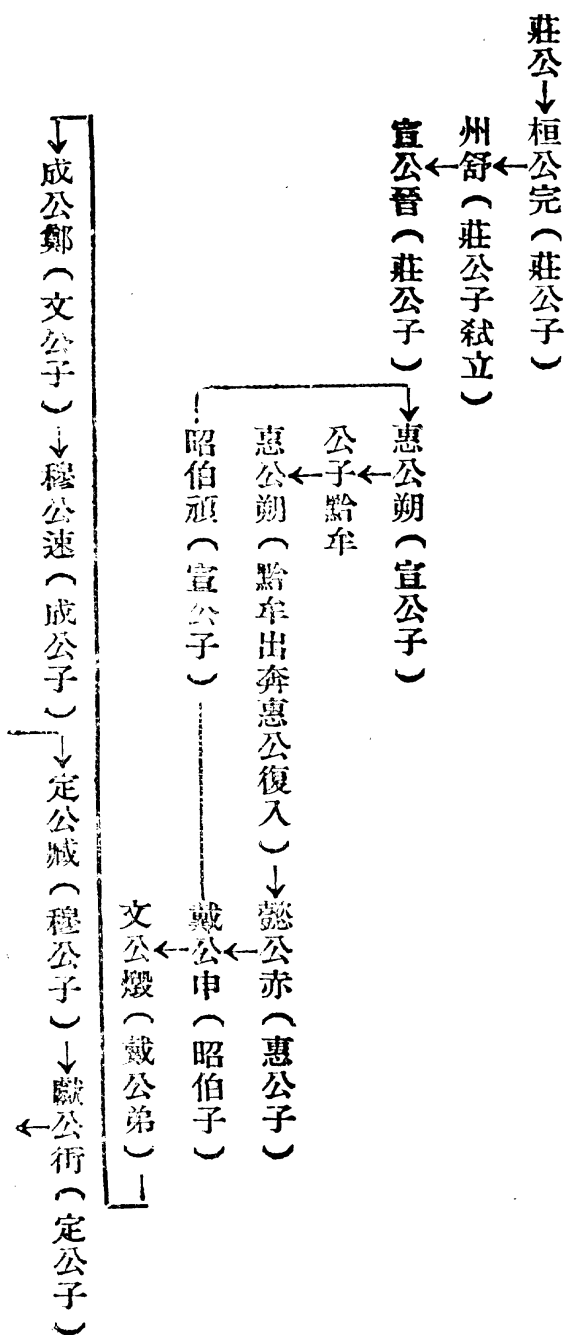 莊公→桓公完(莊公子)
州舒(莊公子弒立)
宣公晉(莊公子)
惠公朔(宣公子)
公子黔牟
惠公朔(黔牟出奔惠公復入)→懿公赤(惠公子)
昭伯頑(宣公子)
戴公申(昭伯子)
文公燬(戴公弟)
→成公鄭(文公子)→穆公速(成公子)→定公臧(穆公子)→獻公衎(定公子)